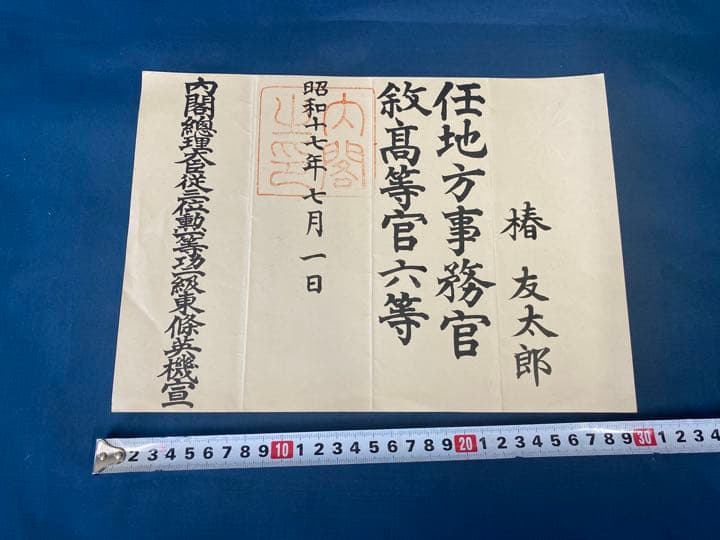 椿 友太郎
任地方事務官
敘高等官六等
昭和十七年七月一日
内閣之印
内閣總理大臣従三位勲一等功二級東條英機宣
2 3 4 5 6 7 8 9 10 1 2 3 4 5 6 7 8 9 20 1 2 3 4 5 6 7 8 9 30 1 2 3 4